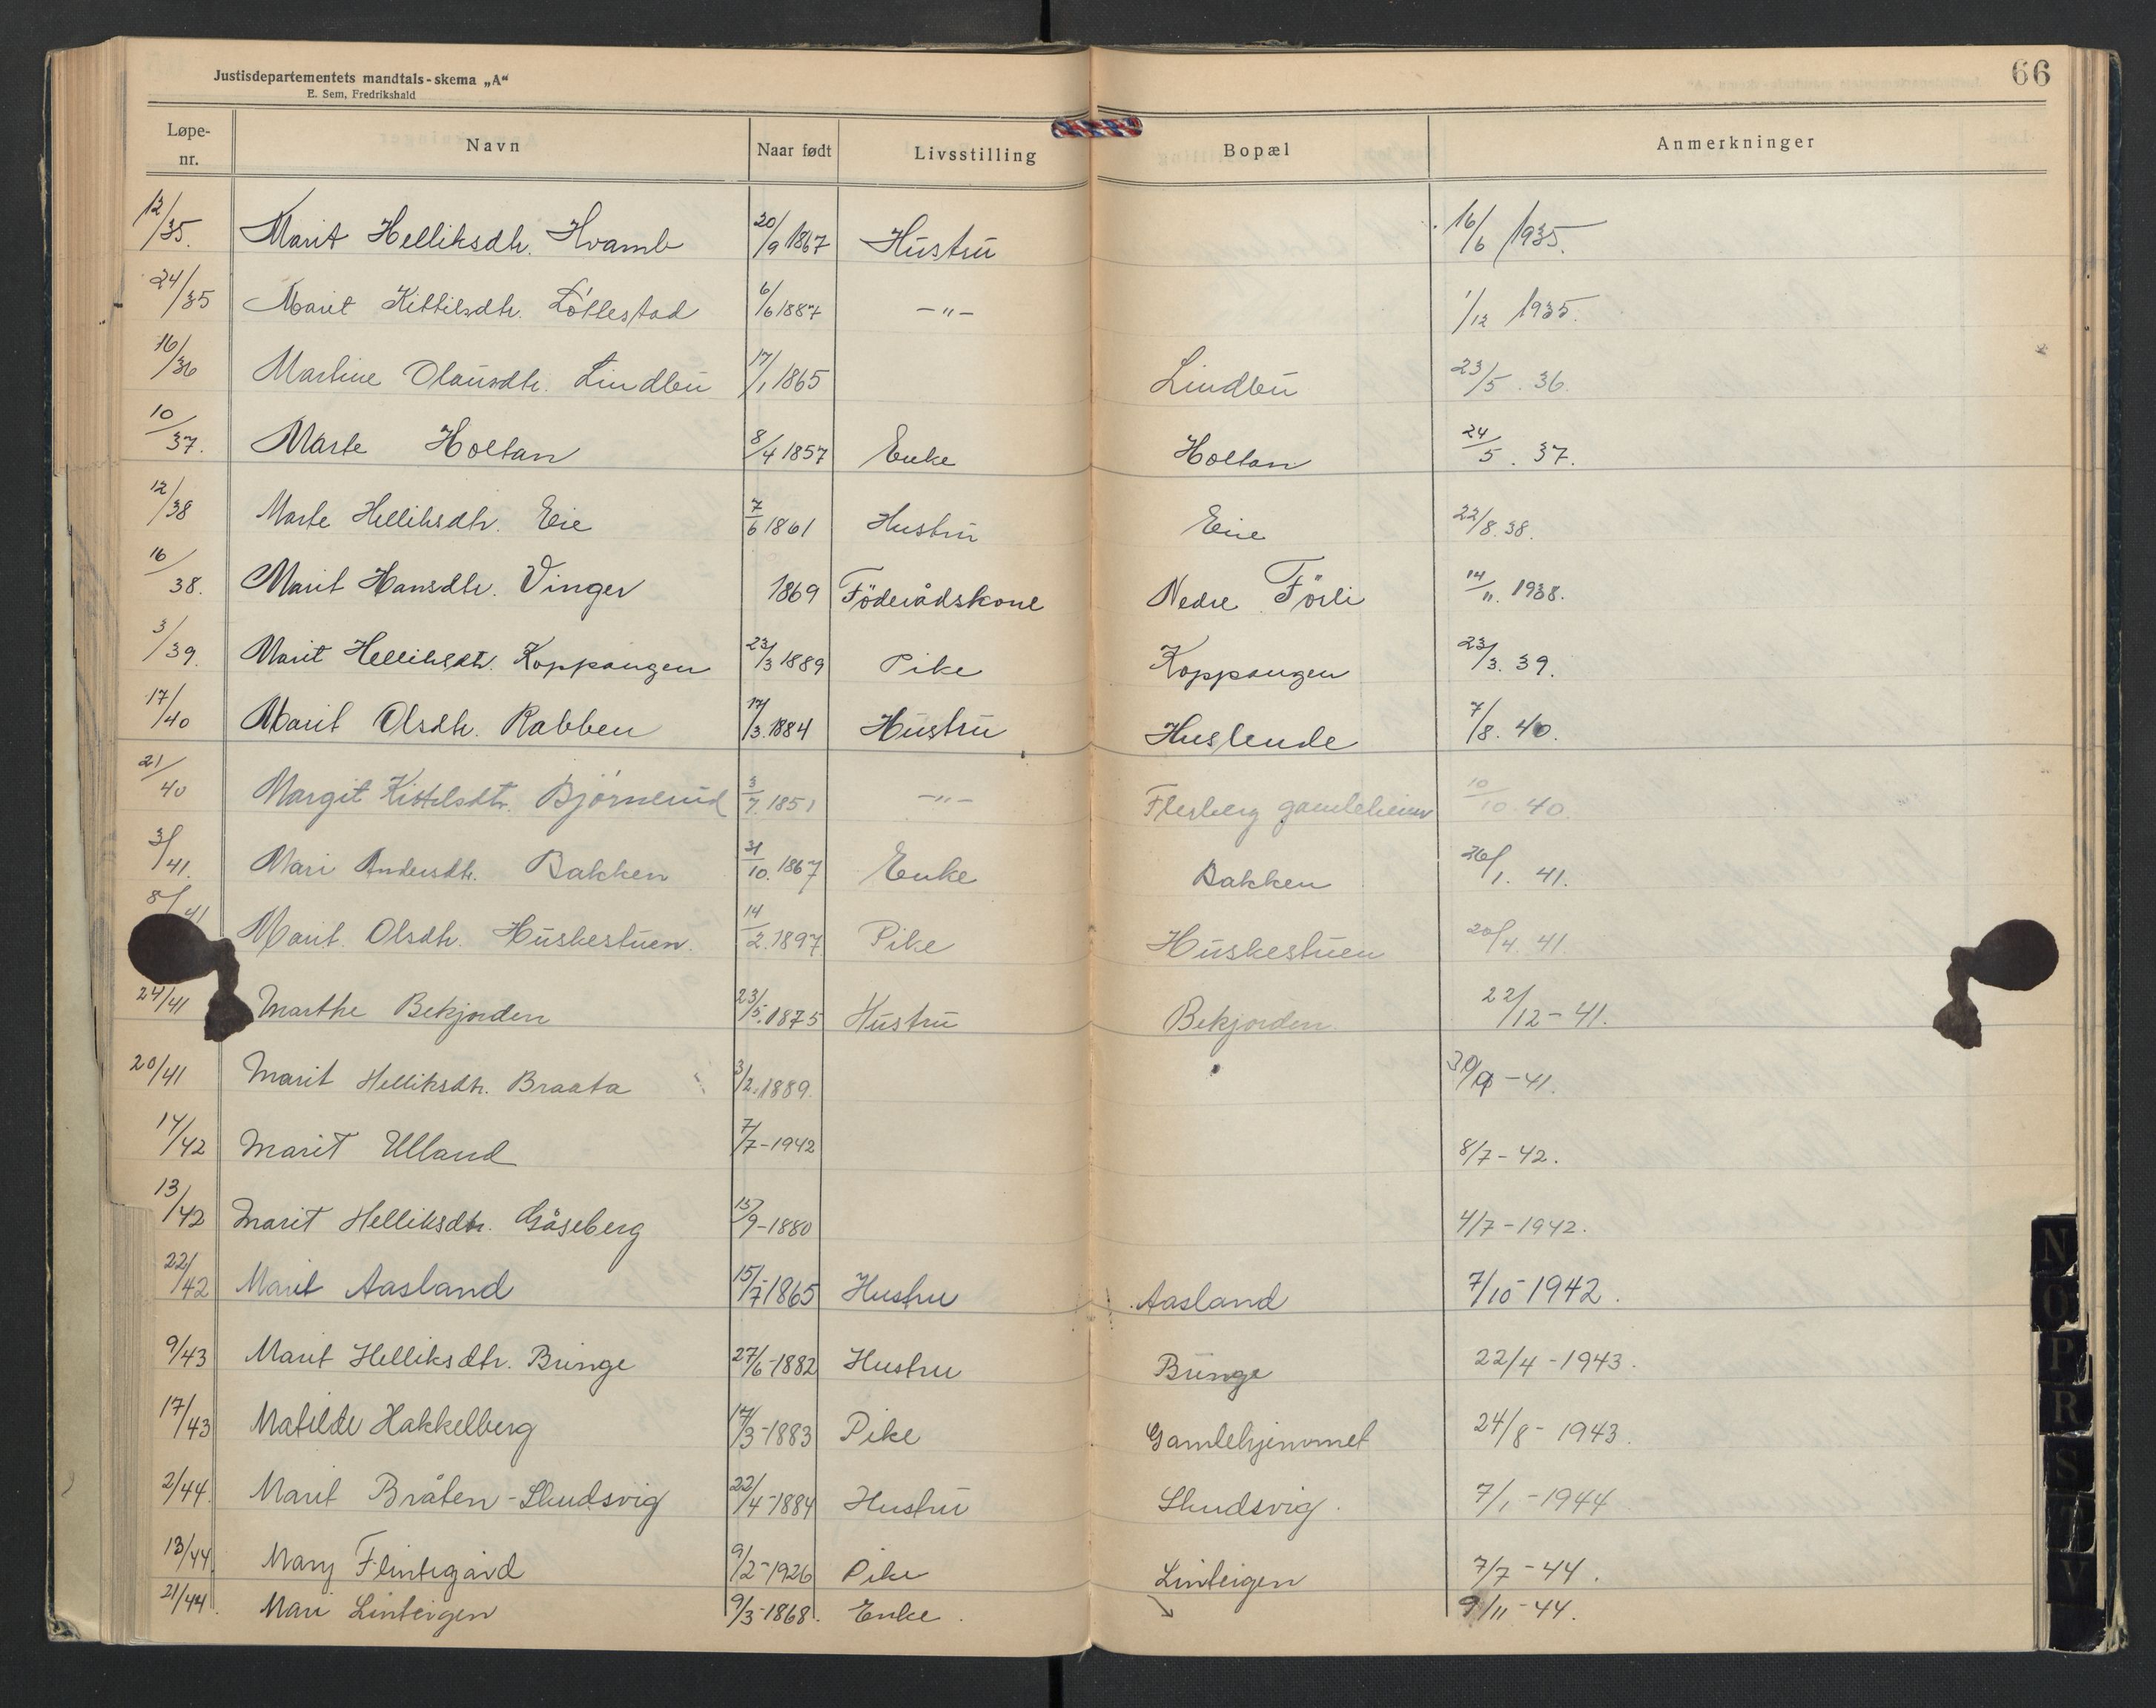 Justisdepartementets mandtals-skema „A“
E. Sem, Fredrikshald
66
Løpe-nr. Navn Naar født Livsstilling Bopæl Anmerkninger
12/35. Marit Helliksdtr. Hvamb 20/9 1867 Hustru 16/6 1935.
24/35 Marit Kittilsdtr. Lóftestad 6/6 1887 —"— 1/12 1935.
16/36 Martine Olausdtr. Lindbu 17/1 1865 Lindbu 23/5. 36.
10/37. Marte Holtan 8/4 1857 Enke Holtan 24/5. 37.
12/38 Marte Helliksdtr. Eie 7/6 1861 Hustru Eie 22/8. 38.
16/38. Marit Hansdtr. Vinger 1869 Föderådskone Nedre Förli 14/11. 1938.
3/39. Marit Helliksdtr. Koppangen 23/3 1889 Pike Koppangen 23/3. 39.
17/40 Marit Olsdtr. Rabben 17/3. 1884 Hustru Huslende 7/8. 40.
21/40 Margit Kittelsdtr. Bjórnerud 3/7. 1851 —"— Flesberg gamleheim 10/10. 40.
3/41. Mari Andersdtr. Bakken 31/10. 1867 Enke Bakken 26/1. 41.
8/41 Marit Olsdtr. Huskestuen. 14/2. 1897 Pike Huskestuen 20/4. 41.
24/41 Marthe Bekjorden 23/5. 1875 Hustru Bekjorden 22/12 - 41.
20/41 Marit Helliksdtr. Braata 3/2. 1889. 30/9 - 41.
14/42 Marit Ulland 7/7 - 1942 8/7 - 42.
13/42 Marit Helliksdtr. Gåseberg 9-1880 4/7 - 1942.
22/42 Marit Aasland 15/7-1865 Hustru Aasland 7/10 - 1942.
9/43 Marit Helliksdtr. Bringe 27/6-1882 Hustru Bringe 22/4 - 1943.
17/43 Matilde Hakkelberg 17/3-1883 Pike Gamlehjemmet 24/8 - 1943.
2/44. Marit Bråten-Skudsvig 22/4-1884 Hustru Skudsvig. 7/1 - 1944
13/44 Mary Flintegård 9/2-1926 Pike Linteigen 7/7 - 44.
21/44. Mari Linteigen 9/3-1868. Enke. 9/11 - 44.
N
O
P
R
S
T
V